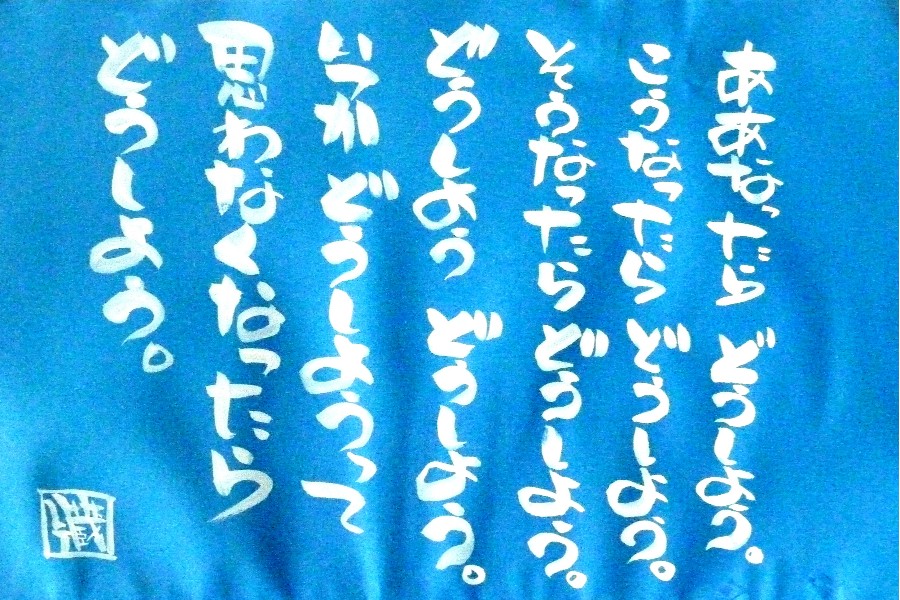 ああなったら どうしよう。
こうなったら どうしよう。
そうなったら どうしよう。
どうしよう どうしよう。
いつか どうしようって
思わなくなったら
どうしよう。